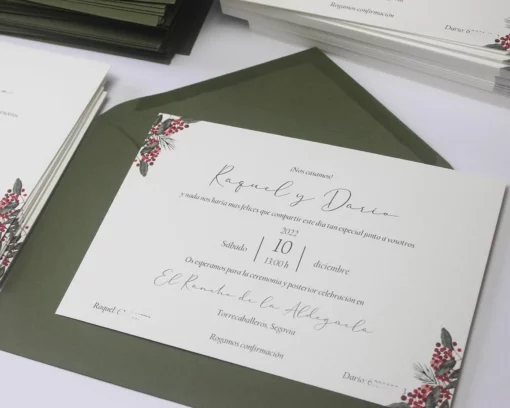 Rogamos confirmación
Darío: 6
¡Nos casamos!
Raquel y Darío
y nada nos haría mas felices que compartir este día tan especial junto a vosotros
2022
Sábado | 10 | diciembre
13:00 h
Os esperamos para la ceremonia y posterior celebración en
El Rancho de la Aldeguela
Torrecaballeros, Segovia
Raquel: 6
Rogamos confirmación
Darío: 6